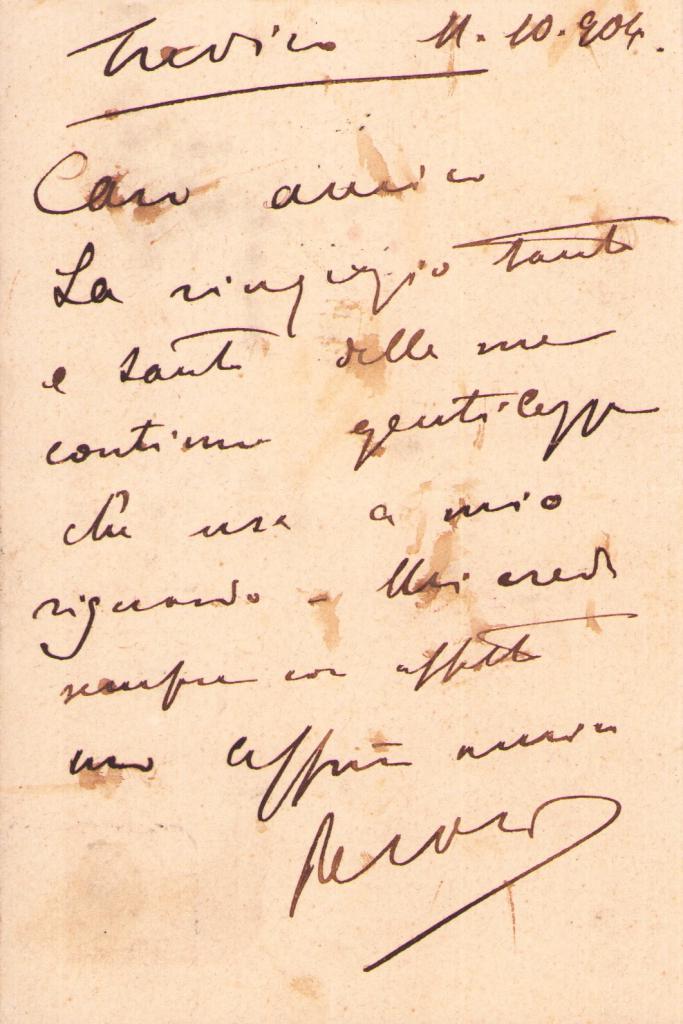 Trevico 11.10.904.
Caro amico
La ringrazio tanto
e tanto delle sue
continue gentilezze
che usa a mio
riguardo - Mi creda
sempre con affetto
suo affmo amico